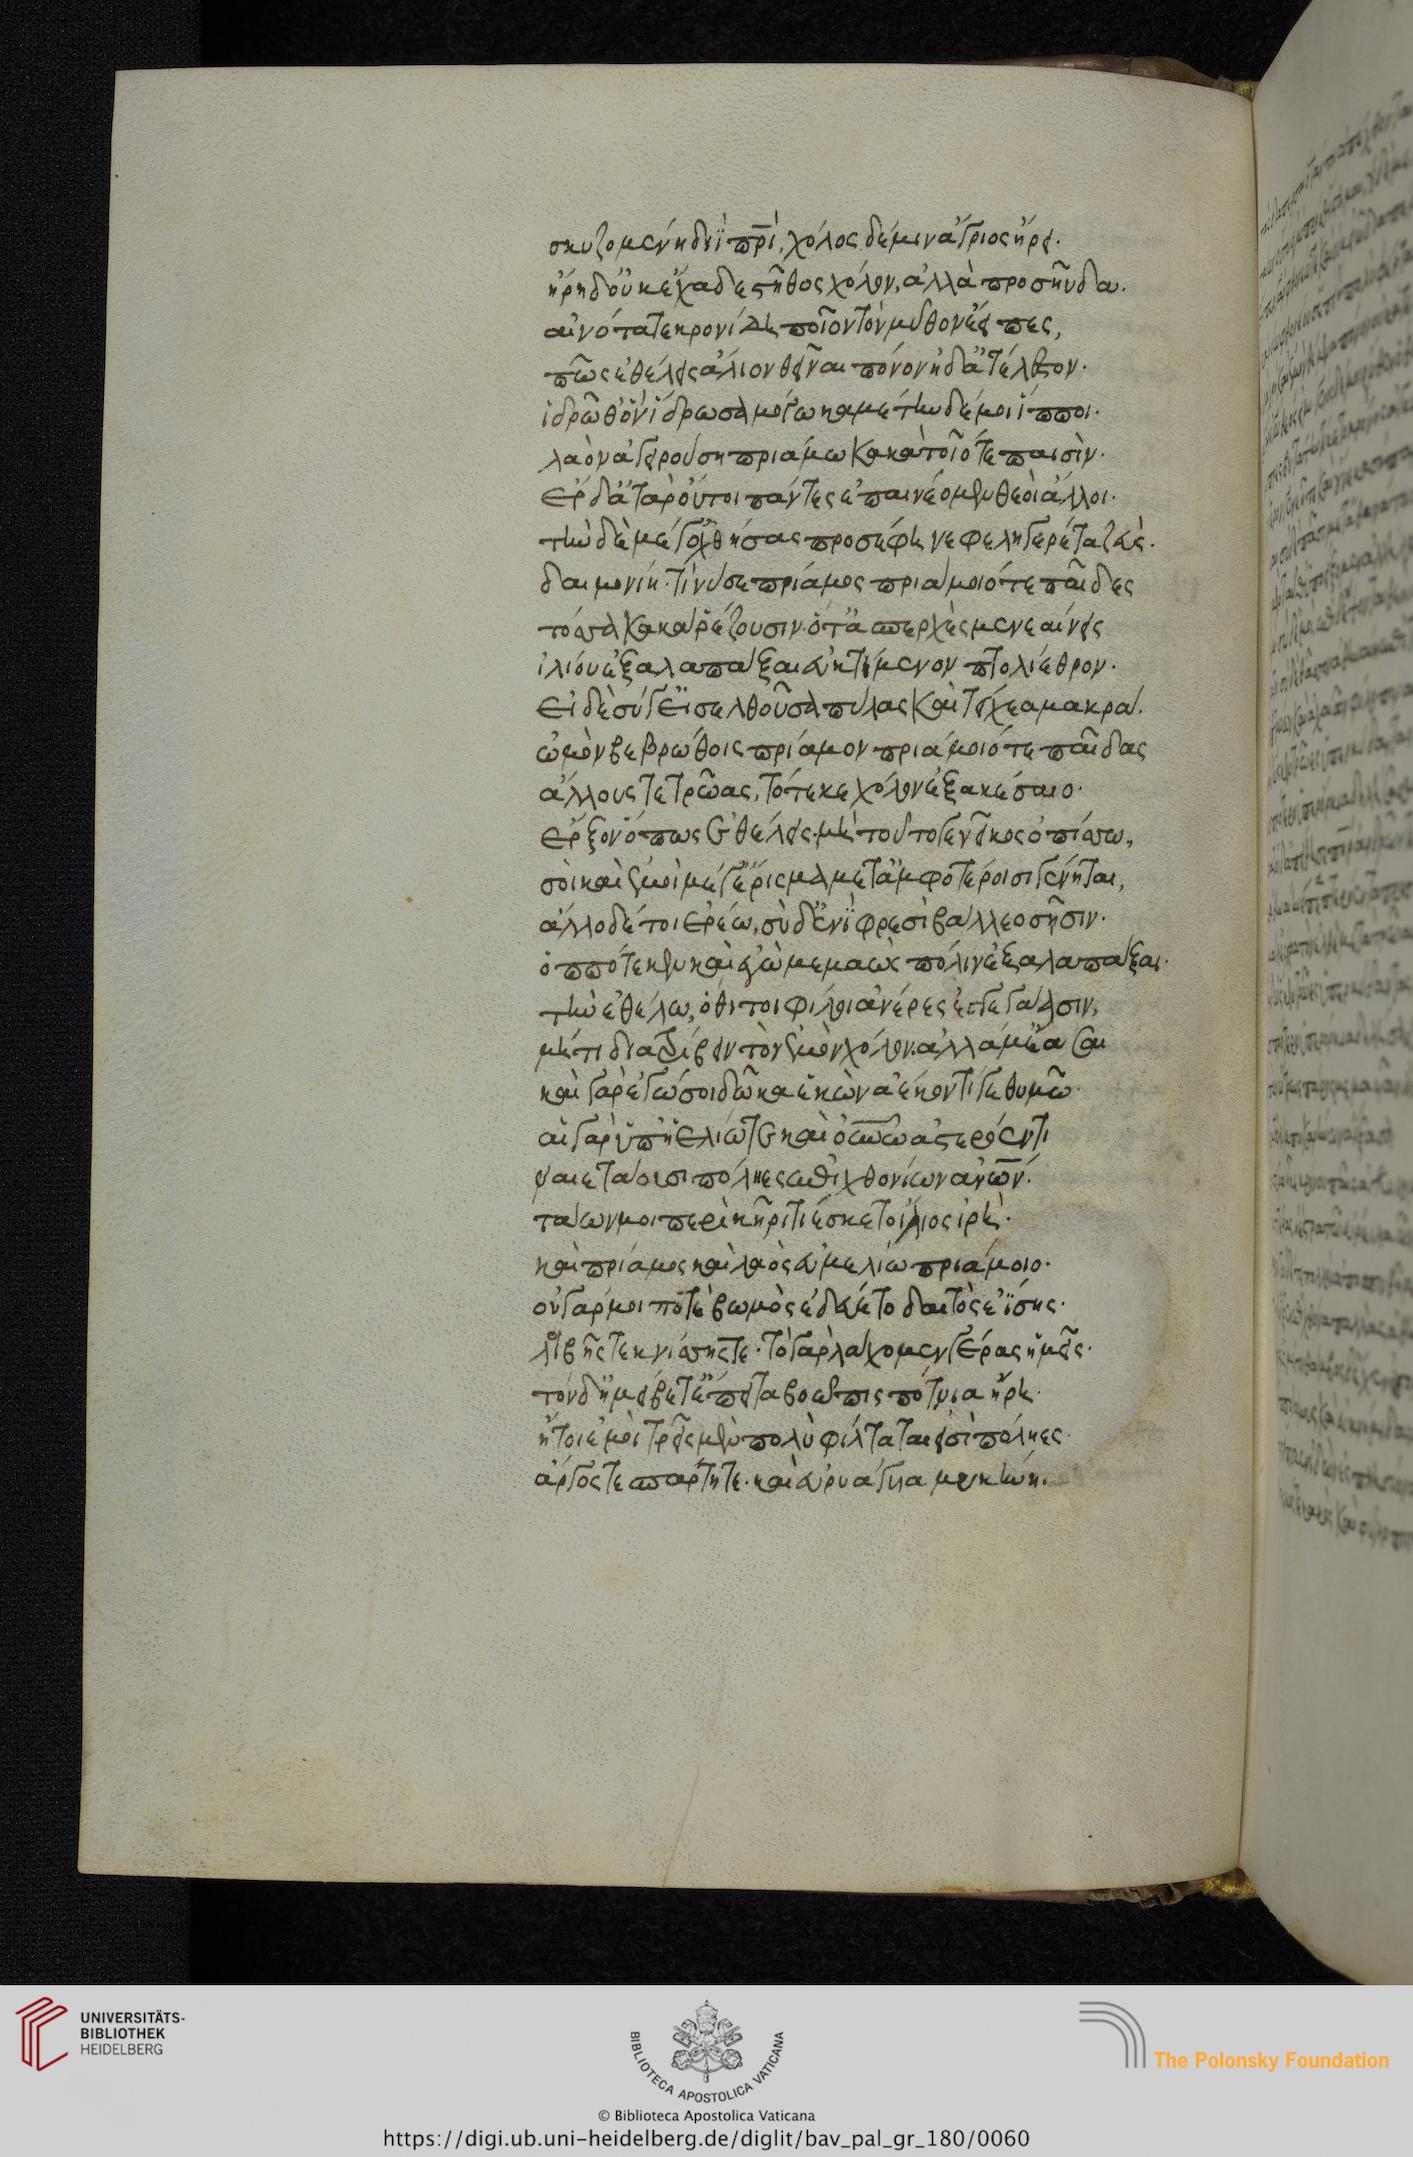 σκυζομένη διῒ πρῒ, χόλος δέ μιν ἄγριος ἥρει.
ἥρη δ' οὐκ ἔχαδε στῆθος χόλον, ἀλλὰ προσηύδα.
αἰνότατε κρονίδη ποῖον τὸν μῦθον ἔειπες,
πῶς ἐθέλεις ἅλιον θεῖναι πόνον ἠδ' ἀτέλεστον.
ἱδρῶ θ' ὃν ἵδρωσα μόγω καμέτην δέ μοι ἵπποι.
λαὸν ἀγειρούση πριάμω κακὰ τοῖό τε παισὶν.
ἔρδ' ἀτὰρ οὔτοι πάντες ἐπαινέομεν θεοὶ ἄλλοι.
τὴν δὲ μέγ' ὀχθήσας προσέφη νεφεληγερέτα ζεὺς.
δαιμονίη. τί νύ σε πρίαμος πριάμοιό τε παῖδες
τόσσα κακὰ ῥέζουσιν. ὅτ' ἀσπερχὲς μενεαίνεις
ἰλίου ἐξαλαπάξαι ἐυκτίμενον πτολίεθρον.
εἰ δὲ σύ γ' εἰσελθοῦσα πύλας καὶ τείχεα μακρά.
ὠμὸν βεβρώθοις πρίαμον πριάμοιό τε παῖδας
ἄλλους τε τρῶας, τότε κε χόλον ἐξακέσαιο.
ἔρξον ὅπως ἐθέλεις. μὴ τοῦτό γε νεῖκος ὀπίσσω,
σοὶ καὶ ἐμοὶ μέγ' ἔρισμα μετ' ἀμφοτέροισι γένηται,
ἄλλο δέ τοι ἐρέω, σὺ δ' ἐνὶ φρεσὶ βάλλεο σῆσιν.
ὁππότε κεν καὶ ἐγὼ μεμαὼς πόλιν ἐξαλαπάξαι.
τὴν ἐθέλω, ὅθι τοι φίλοι ἀνέρες ἐγγεγάασιν,
μή τι διατρίβειν τὸν ἐμὸν χόλον. ἀλλά μ' ἐᾶσαι
καὶ γὰρ ἐγώ σοι δῶκα ἑκὼν ἀέκοντί γε θυμῶ
αἳ γὰρ ὑπ' ἠελίω τε καὶ οὐνῶ ἀστερόεντι
ναιετάουσι πόληες ἐπιχθονίων ἀνων.
τάων μοι περὶ κῆρι τιέσκετο ἴλιος ἱρὴ.
καὶ πρίαμος καὶ λαὸς ἐυμμελίω πριάμοιο.
οὐ γάρ μοι ποτὲ βωμὸς ἐδεύετο δαιτὸς ἐΐσης.
λοιβῆς τε κνίσσης τε. τὸ γὰρ λάχομεν γέρας ἡμεῖς.
τὸν δ' ἠμείβετ' ἔπειτα βοῶπις πότνια ἥρη.
ἤτοι ἐμοὶ τρεῖς μὲν πολὺ φίλταταί εἰσι πόληες
ἄργος τε σπάρτη τε. καὶ εὐρυάγυια μυκήνη.
UNIVERSITÄTS-
BIBLIOTHEK
HEIDELBERG
BIBLIOTECA APOSTOLICA VATICANA
The Polonsky Foundation
© Biblioteca Apostolica Vaticana
https://digi.ub.uni-heidelberg.de/diglit/bav_pal_gr_180/0060